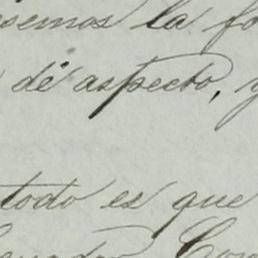 semos la fo
dé aspecto, y
todo es que